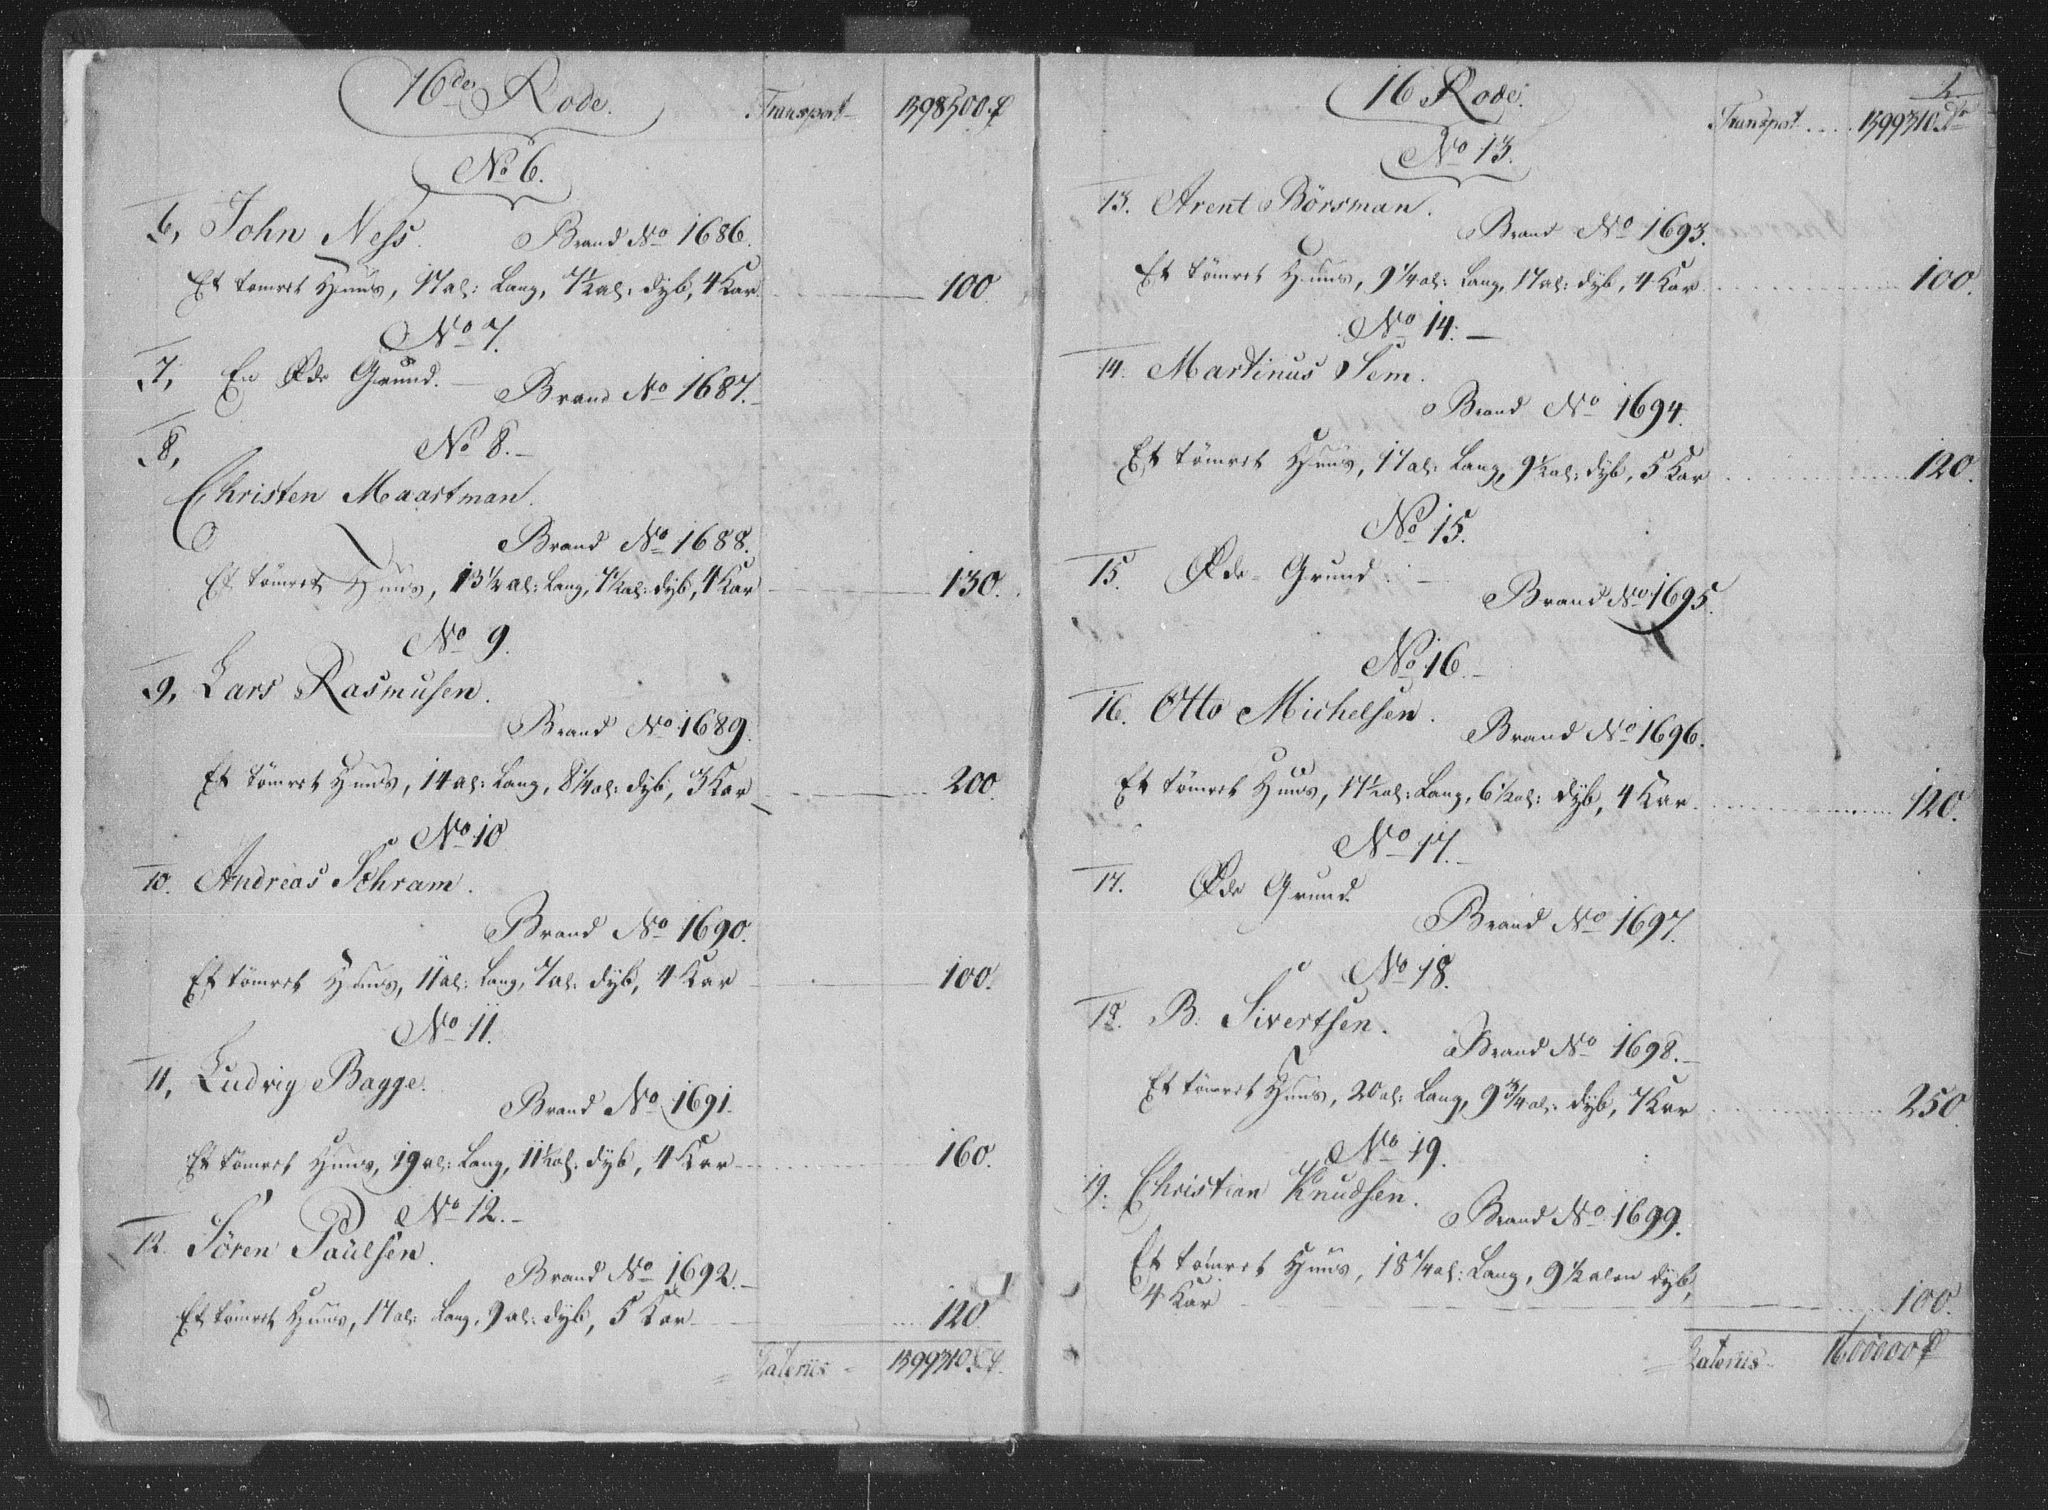 16de Rode.
Transport 1598500
No 6.
6, John Ness.
Brand No 1686.
Et tømret Huus, 17 al: Lang, 7½ al: dyb, 4 Kar. 100.
No 7.
7, En Øde Grund.
Brand No 1687.
No 8.
8,
Christen Maartman.
Brand No 1688.
Et tømret Huus, 13½ al: Lang, 7½ al: dyb, 4 Kar 130.
No 9.
9, Lars Rasmusen.
Brand No 1689.
Et tømret Huus, 14 al: Lang, 8¼ al: dyb, 3 Kar 200.
No 10
10. Andreas Schram.
Brand No 1690.
Et tømret Huus, 11 al: Lang, 7 al: dyb, 4 Kar 100.
No 11.
11, Ludvig Bagge.
Brand No 1691.
Et tømret Huus, 19 al: Lang, 11½ al: dyb, 4 Kar 160.
No 12.
12. Søren Paülsen.
Brand No 1692.
Et tømret Huus, 17 al: Lang, 9 al: dyb, 5 Kar 120
Lateriis 1599310
2.
16 Rode.
Transport 1599310
No 13.
13. Arent Börsman.
Brand No 1693.
Et tømret Huus, 9¼ al: Lang, 17 al: dyb, 4 Kar 100.
No 14.
14. Martinus Sem.
Brand No 1694.
Et tømret Huus, 17 al: Lang, 9½ al: dyb, 5 Kar 120.
No 15.
15. Øde Grund
Brand No 1695.
No 16.
16. Otto Michelsen.
Brand No 1696.
Et tømret Huus, 17½ al: Lang, 6½ al: dyb, 4 Kar 120.
No 17.
17. Øde Grund.
Brand No 1697.
No 18.
18. B: Sivertsen.
Brand No 1698.
Et tømret Huus, 20 al: Lang, 9¾ al: dyb, 7 Kar 250
No 19.
19. Christian Knudsen.
Brand No 1699.
Et tømret Huus, 18¼ al: Lang, 9½ alen dyb,
4 Kar 100.
Lateriis 1600000